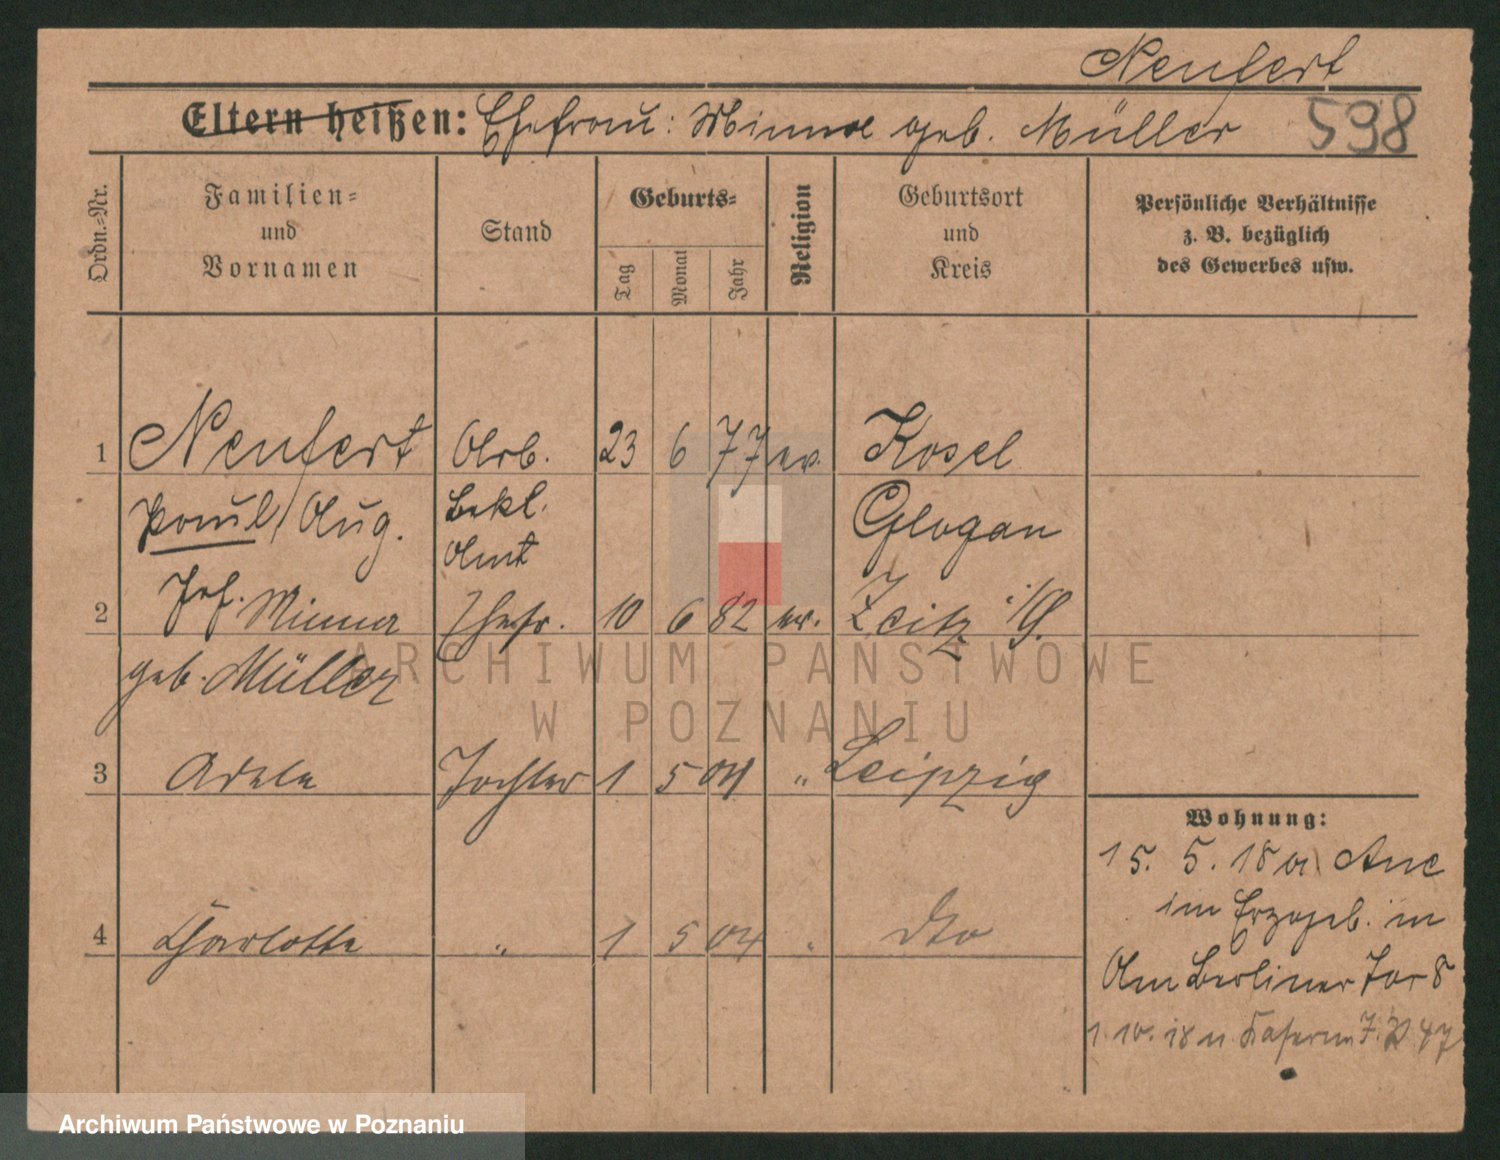 Neufert
Eltern heißen: Ehefrau: Minna geb. Müller 598
Ordn.-Nr.
Familien-
und
Vornamen
Stand
Geburts-
Tag
Monat
Jahr
Religion
Geburtsort
und
Kreis
Persönliche Verhältnisse
z. B. bezüglich
des Gewerbes usw.
1 Neufert Arb. 23 6 77 ev. Kosel
Paul/Aug. Bekl. Glogau
Amt
2 Minna Ehefr. 10 6 82 ev. Zeitz
geb. Müller
3 Adele Tochter 1 5 04 " Leipzig
4 Charlotte " 1 5 04 " dto
Wohnung:
15. 5. 18 a Aue
im Erzgeb. in
Am Berliner Tor 8
1. 10. 18 n Kasernen 47
ARCHIWUM PAŃSTWOWE
W POZNANIU
Archiwum Państwowe w Poznaniu